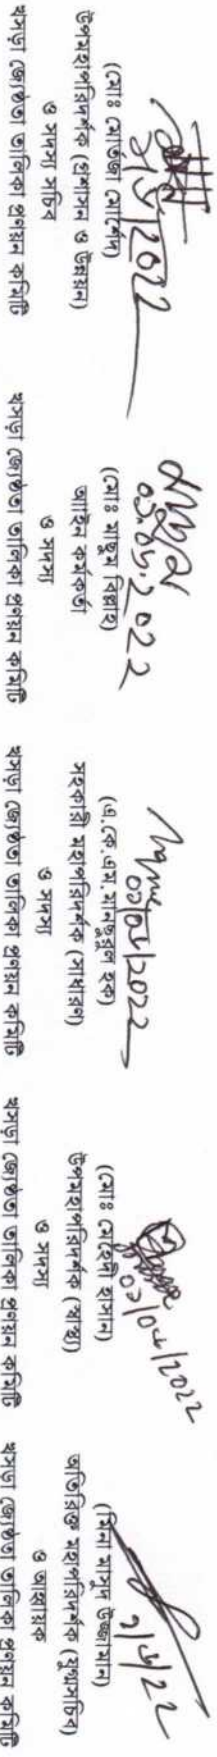 (মোঃ মোর্তজা মোর্শেদ)
উপমহাপরিদর্শক (প্রশাসন ও উন্নয়ন)
ও সদস্য সচিব
খসড়া জ্যেষ্ঠতা তালিকা প্রণয়ন কমিটি
০১.০৮.২০২২
(মোঃ মাছুম বিল্লাহ)
আইন কর্মকর্তা
ও সদস্য
খসড়া জ্যেষ্ঠতা তালিকা প্রণয়ন কমিটি
(এ.কে.এম.সালাহ্উদ্দিন হক)
সহকারী মহাপরিদর্শক (সাধারণ)
ও সদস্য
খসড়া জ্যেষ্ঠতা তালিকা প্রণয়ন কমিটি
(মোঃ মেহেদী হাসান)
উপমহাপরিদর্শক (স্বাস্থ্য)
ও সদস্য
খসড়া জ্যেষ্ঠতা তালিকা প্রণয়ন কমিটি
(মিনা মাসুদ উজ্জামান)
অতিরিক্ত মহাপরিদর্শক (যুগ্মসচিব)
ও আহ্বায়ক
খসড়া জ্যেষ্ঠতা তালিকা প্রণয়ন কমিটি